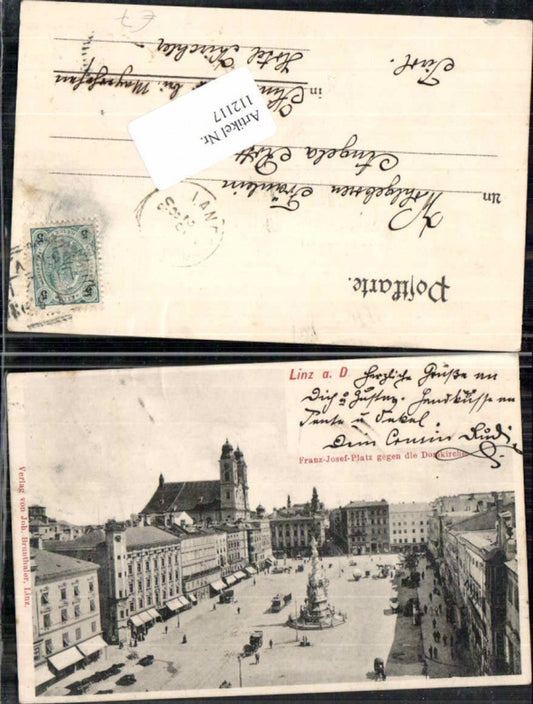 Postkarte.
Wohlgeboren Fräulein
An
Angela
in
bei Mayrhofen
Hotel
Tirol.
Artikel Nr.
112117
5 5
Linz a. D
Herzliche Grüße an
Dich u Gustav. Handküsse an
Tante u Onkel.
Dein Cousin Rudi.
Franz-Josef-Platz gegen die Domkirche
Verlag von Joh. Brunthaler, Linz.